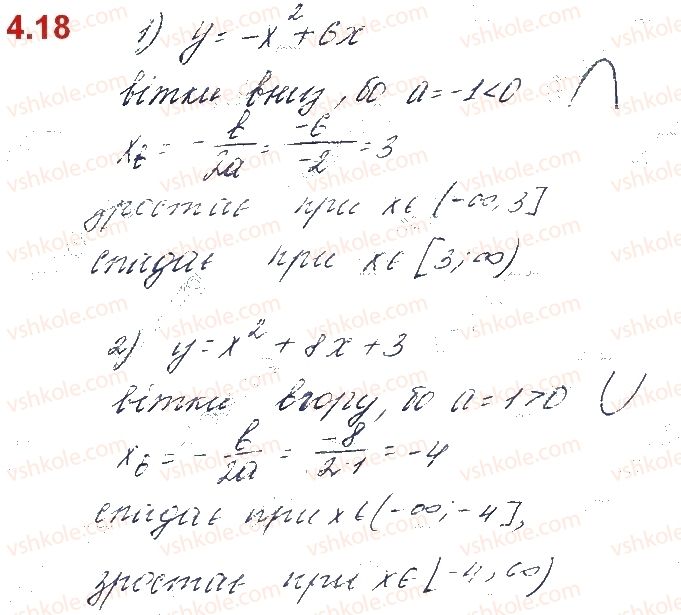 4.18
1) y = -x² + 6x
вітки вниз, бо a = -1 < 0
xв = - в/2a = -6/-2 = 3
зростає при x ∈ (-∞; 3]
спадає при x ∈ [3; ∞)
2) y = x² + 8x + 3
вітки вгору, бо a = 1 > 0
xв = - в/2a = -8/2·1 = -4
спадає при x ∈ (-∞; -4],
зростає при x ∈ [-4; ∞)
vshkole.com